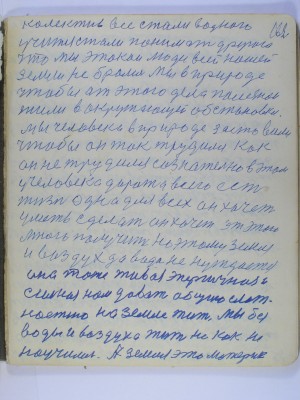 колектив все стали водного
учится стали понимат другого
что мы этакои люди всей нашей
земли не брали мы в природе
чтобы от этого дела полезное
жили в окружающей обстановки.
мы человека в природе заставили
чтобы он так трудился как
он не трудился сознательно в этом
у человека дорога всего ест
жизн одна для всех он хочет
умет сделат он хочет от этого
много получит но этому земля
и воздух да вода не нуждается
она тоже живая энергичная
сильная нам дават общую
на земле жит. мы без
воды и воздуха жит не как не
научилис. А земля это материя